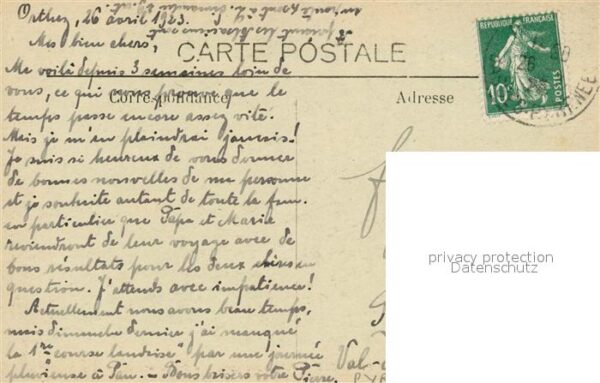 Orthez, 26 avril 1923.
Mes bien chers,
CARTE POSTALE
Correspondance
Adresse
RÉPUBLIQUE FRANÇAISE
10c
POSTES
Me voilà depuis 3 semaines loin de
vous, ce qui vous prouve que le
temps passe encore assez vite.
Mais je m'en plaindrai jamais!
Je suis si heureux de vous donner
de bonnes nouvelles de ma personne
et je souhaite autant de toute la fam.
en particulier que Papa et Marie
reviendront de leur voyage avec de
bons résultats pour les deux choses en
question. J'attends avec impatience!
Actuellement nous avons beau temps,
mais dimanche dernier j'ai manqué
la 1re "course landaise" par une journée
pluvieuse à Pau. - Bons baisers votre Pierre.
Val-
privacy protection
Datenschutz